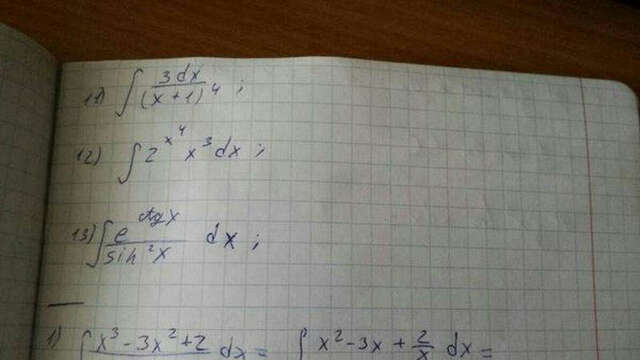 11) ∫ 3dx/(x+1)^4 ;
12) ∫ 2^x^4 x^3 dx ;
13) ∫ e^ctgx/sin^2x dx ;
1) ∫ x^3-3x^2+2 dx = ∫ x^2-3x+2/x dx =